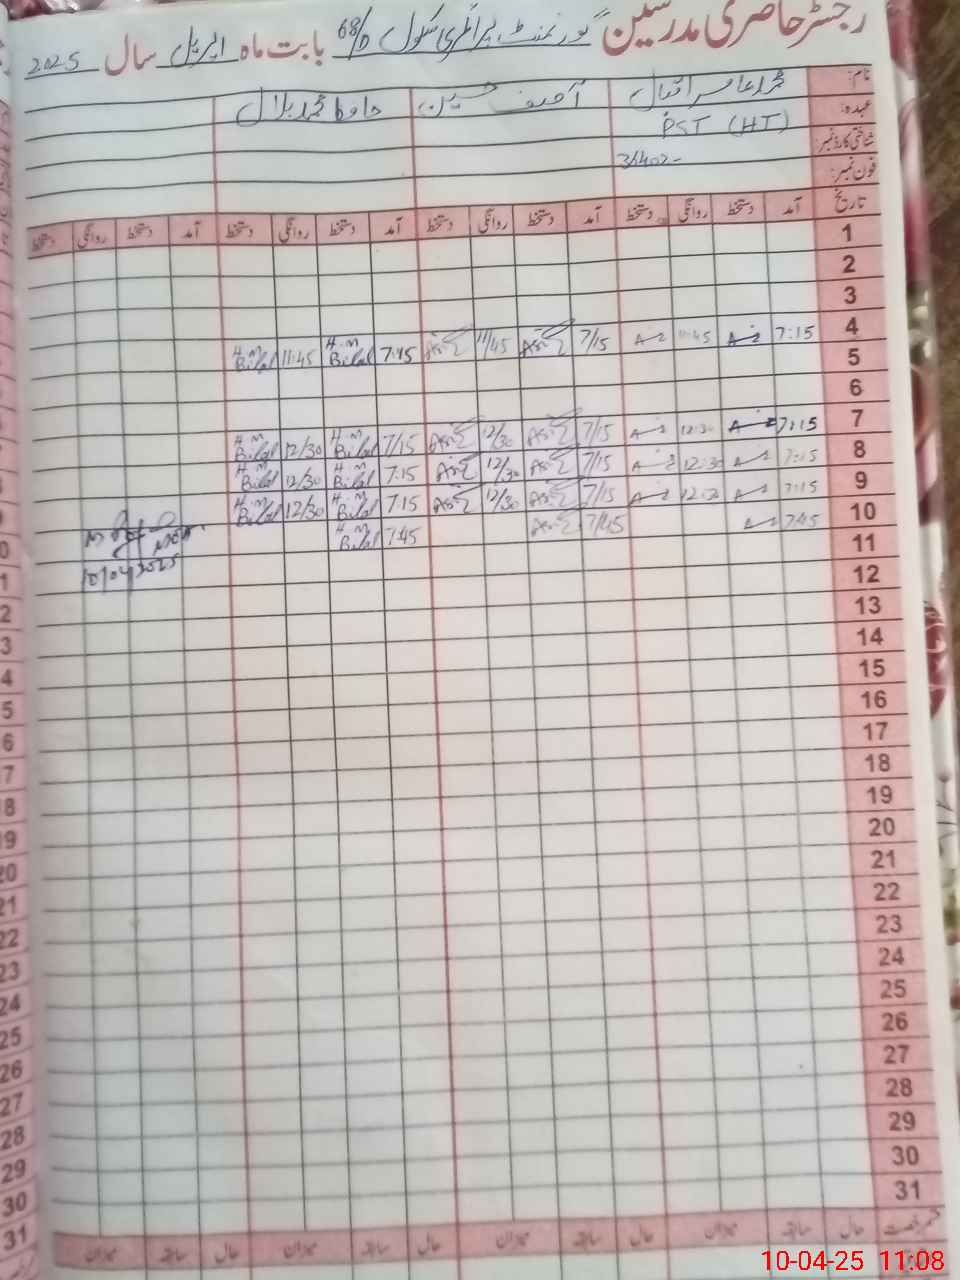 رجسٹر حاضری مدرسین گورنمنٹ پرائمری سکول 68/D بابت ماہ اپریل سال 2025
نام: محمد عامر اقبال آصف حسین حافظ محمد بلال
عہدہ: PST (HT)
شناختی کارڈ نمبر: 36402-
فون نمبر:
تاریخ آمد دستخط روانگی دستخط آمد دستخط روانگی دستخط آمد دستخط روانگی دستخط آمد دستخط روانگی دستخط
1
2
3
4 7:15 11:45 7/15 11/45 7:45 H.M Bilal 11:45 H.M Bilal
5
6
7 7:15 12:30 7/15 12/30 7/15 H.M Bilal 12/30 H.M Bilal
8 7:15 12:30 7/15 12/30 7:15 H.M Bilal 12/30 H.M Bilal
9 7:15 12:30 7/15 12/30 7:15 H.M Bilal 12/30 H.M Bilal
10 7:45 7/45 7:45 H.M Bilal
10/04/2025
11
12
13
14
15
16
17
18
19
20
21
22
23
24
25
26
27
28
29
30
31
حال سابقہ میزان حال سابقہ میزان حال سابقہ میزان حال سابقہ میزان
10-04-25 11:08